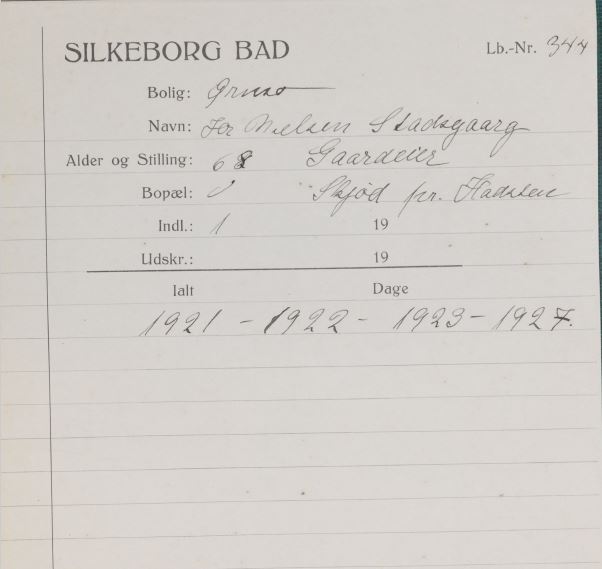 SILKEBORG BAD Lb.-Nr. 344
Bolig:
Navn: Nielsen Stadsgaard
Alder og Stilling: 68 Gaardeier
Bopæl: Skjød pr. Hadsten
Indl.: 1 19
Udskr.: 19
Ialt Dage
1921 - 1922 - 1923 - 1927.